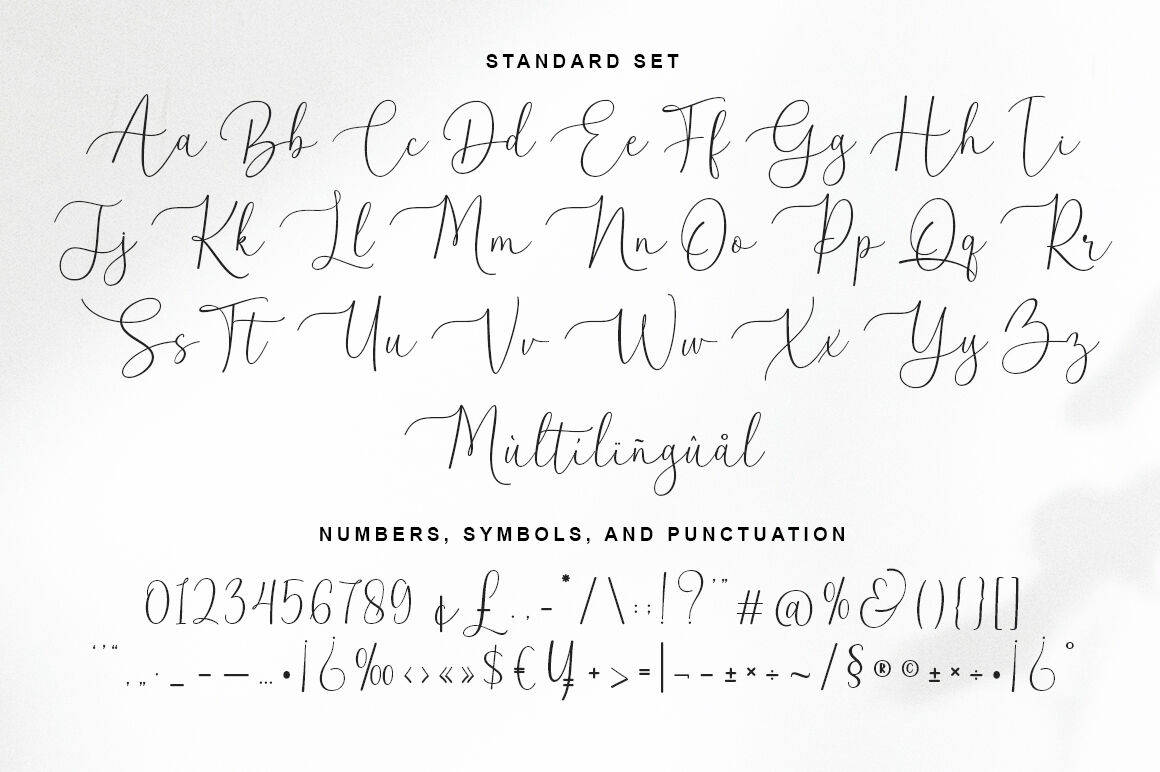 STANDARD SET
Aa Bb Cc Dd Ee Ff Gg Hh Ii
Jj Kk Ll Mm Nn Oo Pp Qq Rr
Ss Tt Uu Vv Ww Xx Yy Zz
Mùltíliïñgûål
NUMBERS, SYMBOLS, AND PUNCTUATION
0123456789 ¢£.,-*/\:;!?'"#@%&(){}[]
‘’“‚„·_–—…•¡¿‰‹›«»$€¥+>=|¬-±×÷~/§®©±×÷•¡¿°